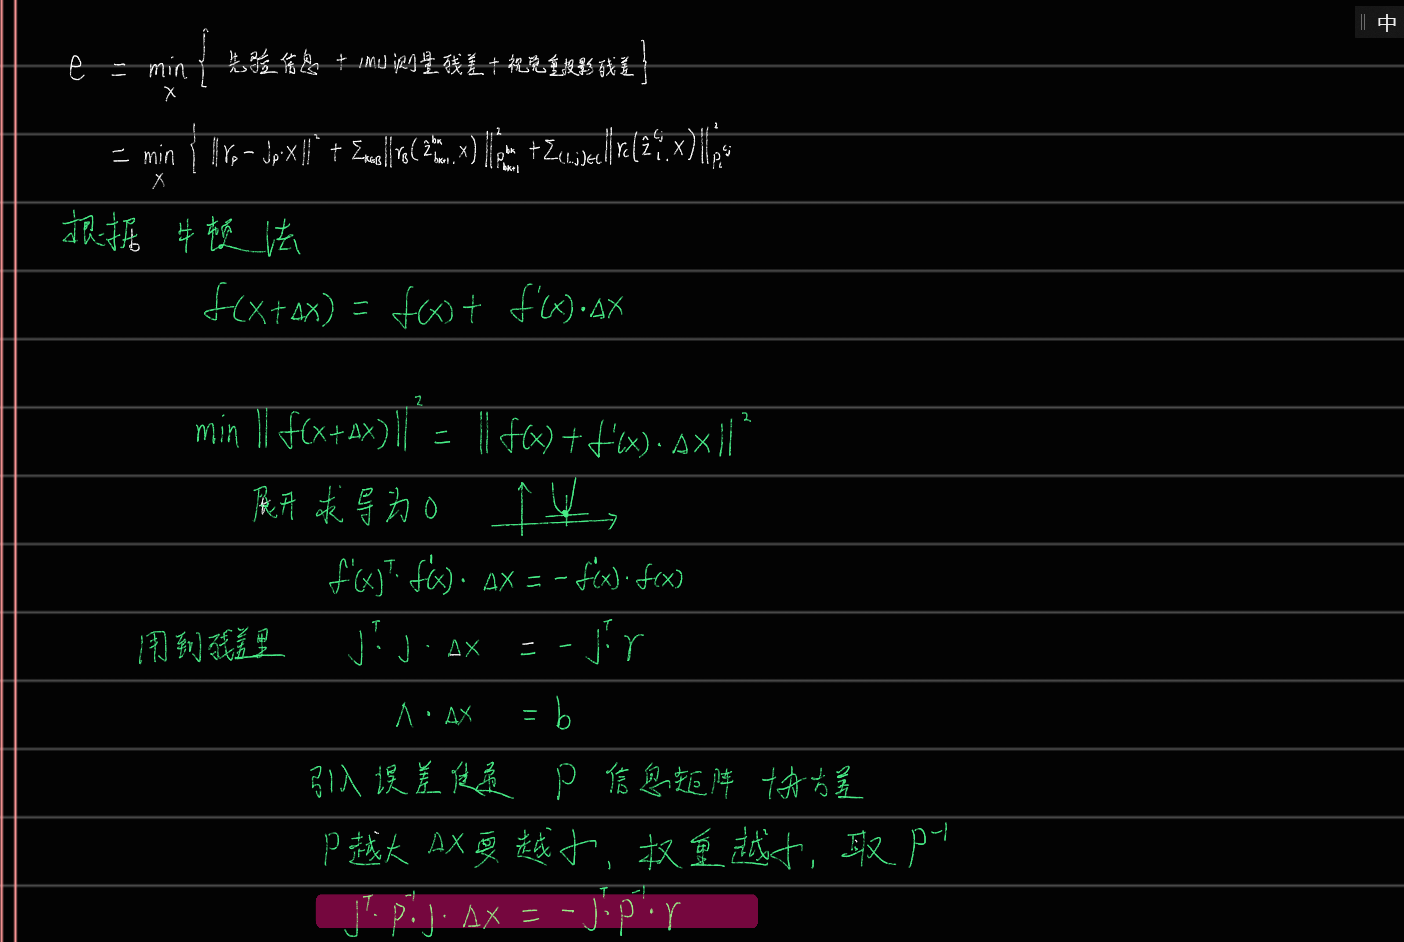 中
e = min_x { 先验信息 + IMU测量残差 + 视觉重投影残差 }
= min_x { ||r_p - J_p·X||² + Σ_{k∈B} ||r_B(ẑ^{b_k}_{b_{k+1}}, X)||²_{P^{b_k}_{b_{k+1}}} + Σ_{(l,j)∈C} ||r_C(ẑ^{C_j}_l, X)||²_{P^{C_j}_l}
根据 牛顿法
f(x+Δx) = f(x) + f'(x)·Δx
min ||f(x+Δx)||² = ||f(x) + f'(x)·Δx||²
展开求导为0
f'(x)^T· f'(x)· Δx = - f'(x)· f(x)
用到残差里 J^T· J · Δx = - J^T· r
Λ · Δx = b
引入误差传递 P 信息矩阵 协方差
P越大 Δx要越小, 权重越小, 取 P⁻¹
J^T· P⁻¹· J · Δx = - J^T· P⁻¹· r